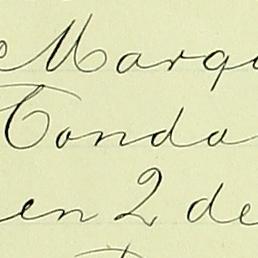 Marqu
Conda
en 2 de